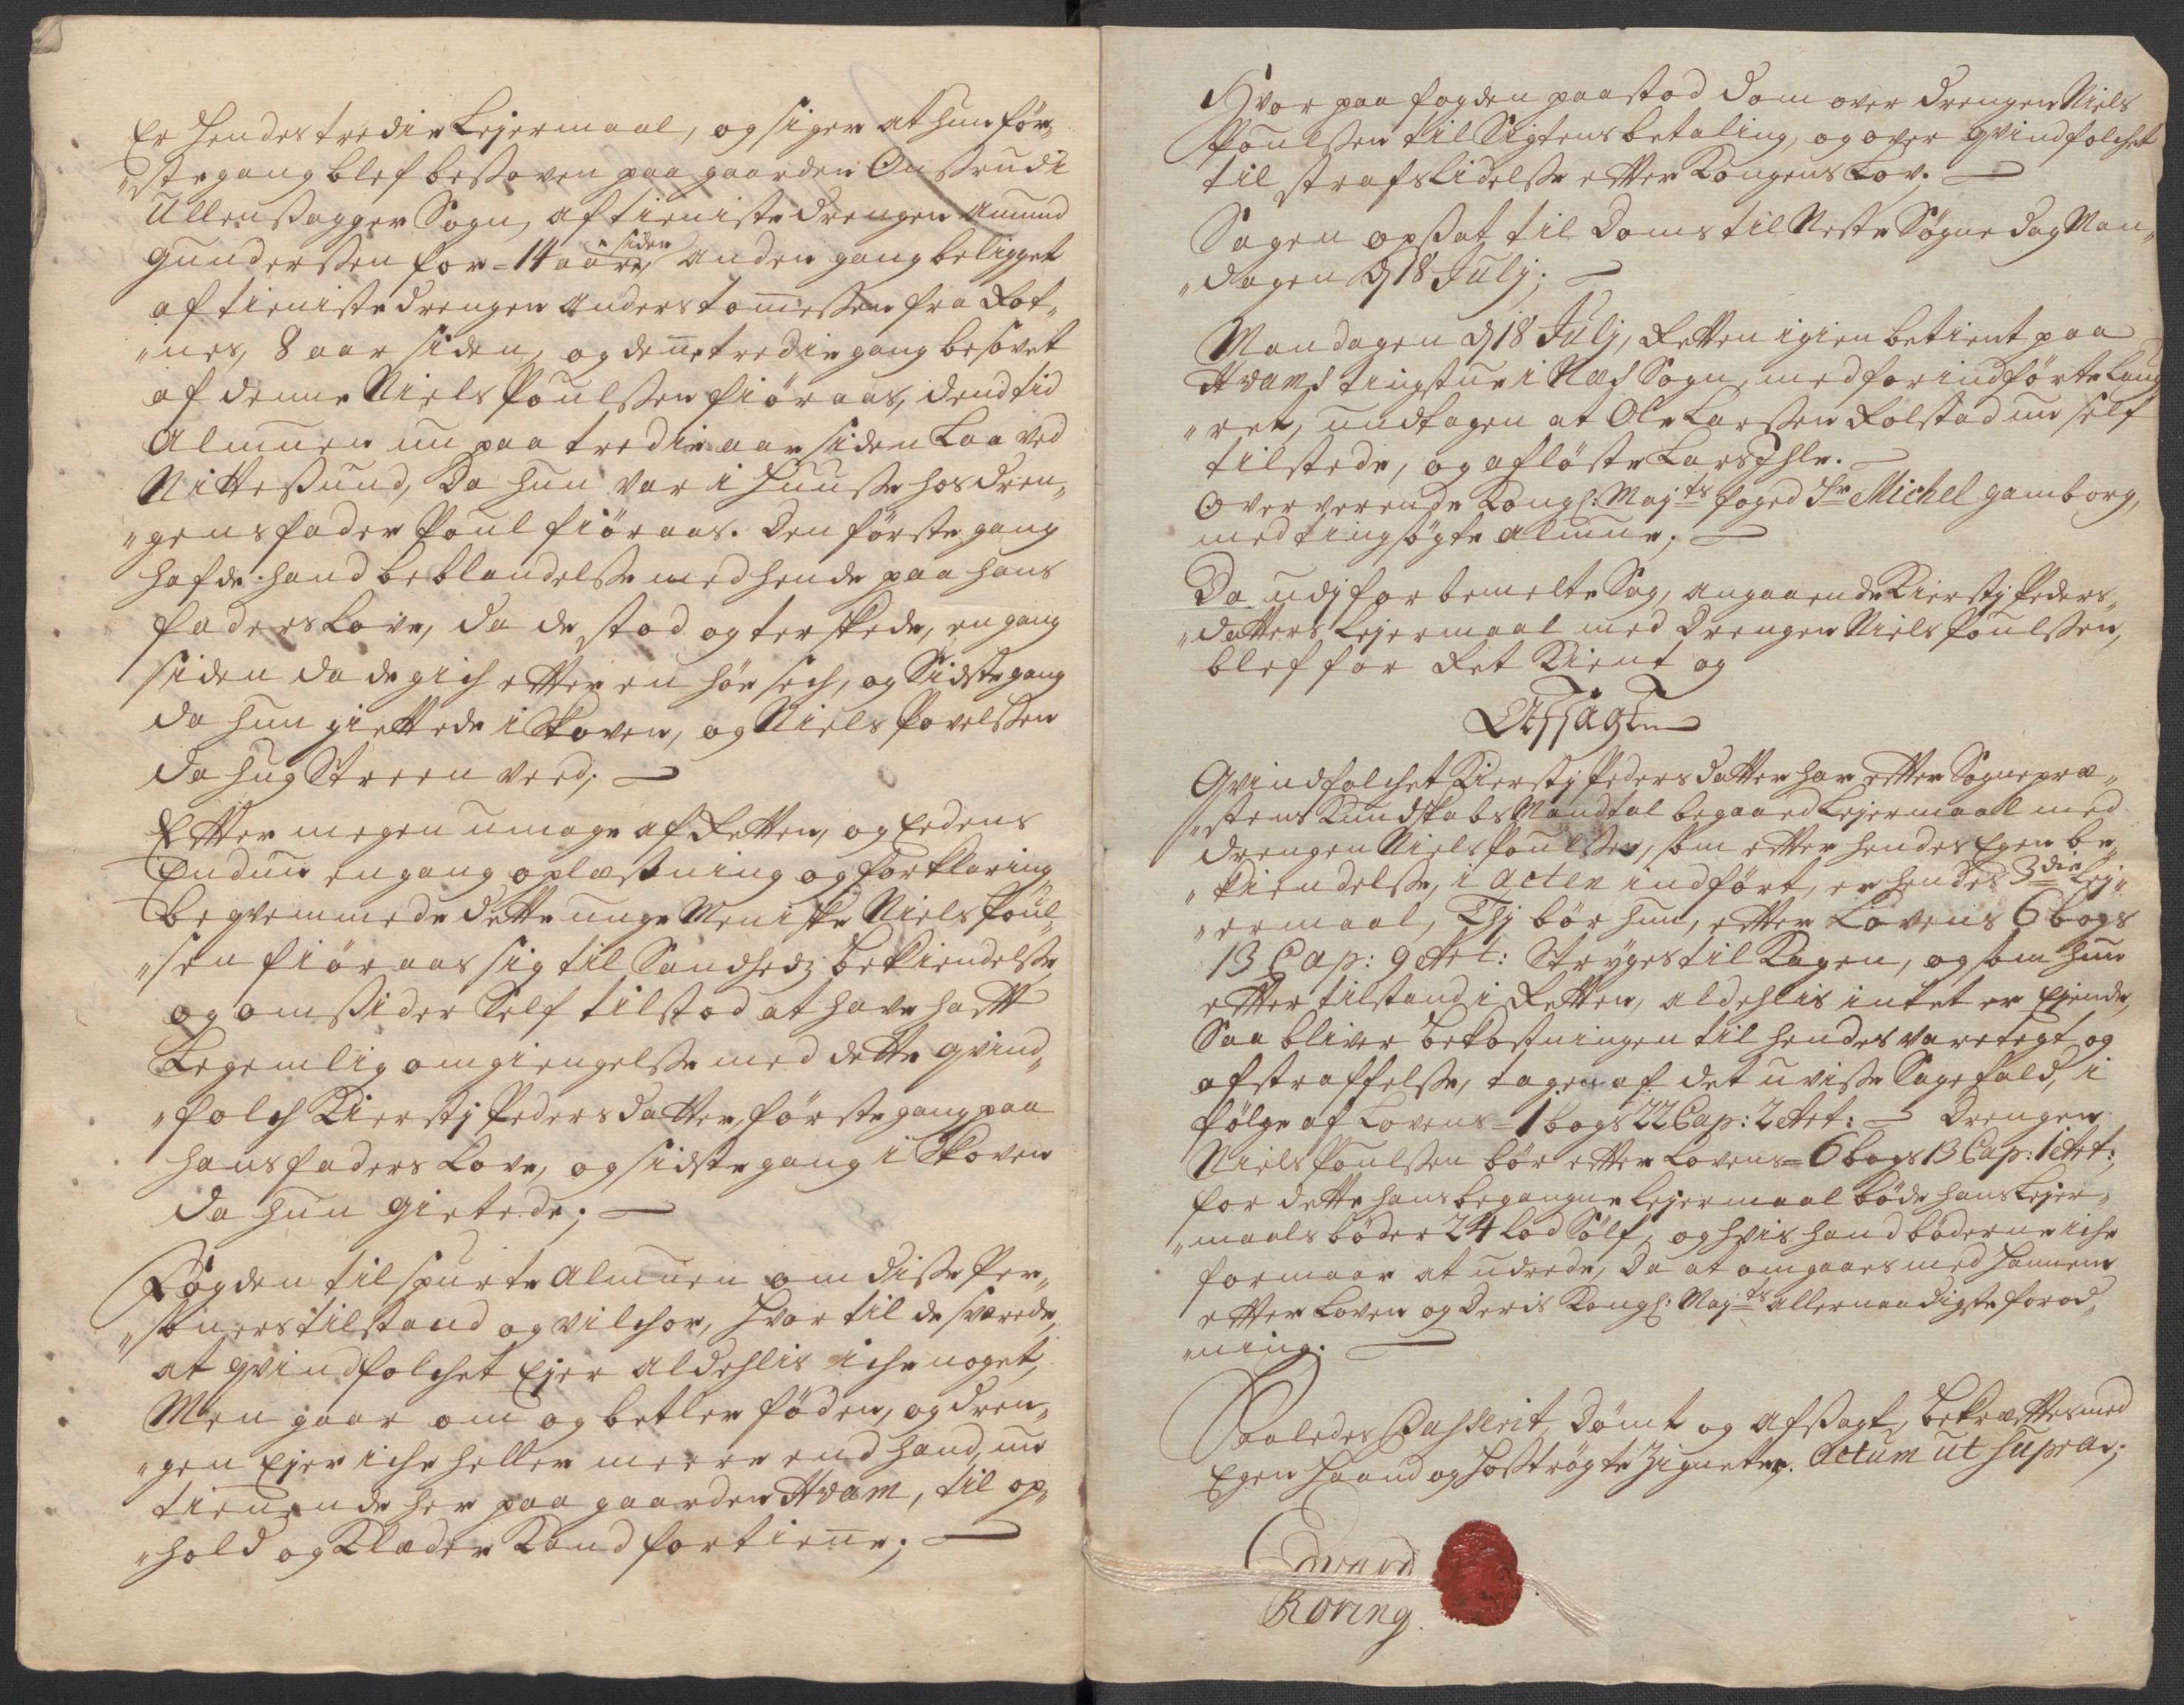 Er hendes tredie Lejermaal, og siger at hun för„
„ste gang blef besoven paa gaarden Onsrud i
Ullensagger Sogn, af tieniste drengen Amund
Gundersen for = 14 aar siden, anden gang beligget
af tieniste drengen Anders tomesen fra Rot„
„nes, 8 aar siden, og denne tredie gang besovet
af denne Niels Poulsen fiöraas, dend tid
Almuen nu paa tredie aar siden Laa ved
Nittesund, Da hun var i Huuse hos dren„
„gens fader Poul fiöraas. Den förste gang
hafde hand beblandelse med hende paa hans
faders Love, da de stod og terskede, en gang
siden da de gich etter en hör sech, og Sidste gang
da hun giettede i Skoven, og Niels Povelsen
da hug Streen veed; —
Etter megen umage af Retten, og Eedens
Endnu en gang oplæsning og forklaring
beqvemmede dette unge Meniske Niels Poul„
„sen fiöraas sig til Sandhedz bekiendelse
og omsider Self tilstod at have hatt
Legemlig omgiengelse med dette qvind„
„folch Kierstj Peders datter, förste gang paa
hans faders Love, og sidste gang i Skoven
da hun gietede; —
Fogden tilspurte Almuen om disse Per„
„soners tilstand og vilchor, hvor til de svarede,
at qvindfolchet Ejer aldehlis iche noget,
Men gaar om og betler föden, og dren„
„gen Ejer iche heller meere end hand, nu
tienende her paa gaarden Hvam, til op„
„hold og Klæder Kand fortiene; —
Hvor paa fogden paastod dom over drengen Niels
Poulsen til Sigtens betaling, og over qvindfolchet
til strafs Lidelse etter Kongens Lov. —
Sagen opsat til Doms til Neste Sögne dag Man„
„dagen d 18 Julj; —
Mandagen d 18 Julj, Retten igien betient paa
Hvams tingstue i Næs Sogn, med for indförte Laug„
„ret, undtagen at Ole Larsen Rolstad nu self
tilstede, og aflöste Lars Ihle. —
Oververende Kongl: Maj:ts foged Sr Michel Gamborg,
med tingsögte Almue; —
Da udj for bemelte Sag, angaaende Kierstj Peders„
„datters Lejermaal med Drengen Niels Poulsen,
blef for Ret Kient og
Afsagt
Qvindfolchet Kierstj Peders datter har etter Sognepræ„
„stens Kundskabs Mandtal begaaed Lejermaal med
drengen Niels Poulsen, som etter hendes Egen be„
„kiendelse, i Acten indfört, er hendes 3die Lej„
„ermaal, Thj bör hun, etter Lovens 6 bogs
13 Cap: 9 Art: Stryges til Kagen, og som hun
etter tilstand i Retten, aldehlis intet er Ejende,
Saa bliver bekostningen til hendes varetegt og
afstraffelse, tagen af det uvisse Sagefald, i
fölge af Lovens = 1 bogs 22 Cap: 2 Art: — Drengen
Niels Poulsen bör etter Lovens = 6 bogs 13 Cap: 1 Art:,
for dette hans begangne Lejermaal böde hans Lejer„
„maals böder 24 Lod Sölf, og hvis hand böderne iche
formaar at udrede, Da at omgaaes med hannem
etter Loven og Deris Kongl: Maj:ts allernaadigste forord„
„ning. —
Saaledes Passerit, Dömt og Afsagt, bekræfter med
Egen Haand og hoströgte Zigneter. Actum ut supra;
Edvard
Röring.